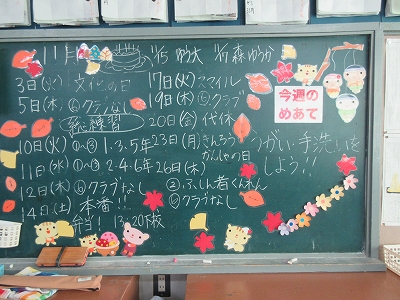 11月
3日(火) 文化の日
5日(木) ⑥クラブなし
総練習
10日(火) ①~③ 1.3.5年
11日(水) ①~③ 2.4.6年
12日(木) ⑥クラブなし
14日(土) 本番!!
弁当 13:20下校
17日(火) スマイル
19日(木) ⑥クラブ
20日(金) 代休
23日(月) きんろう
かんしゃの日
26日(木)
②ふしん者くんれん
⑥クラブなし
今週の
めあて
うがい・手洗いを
しよう!!